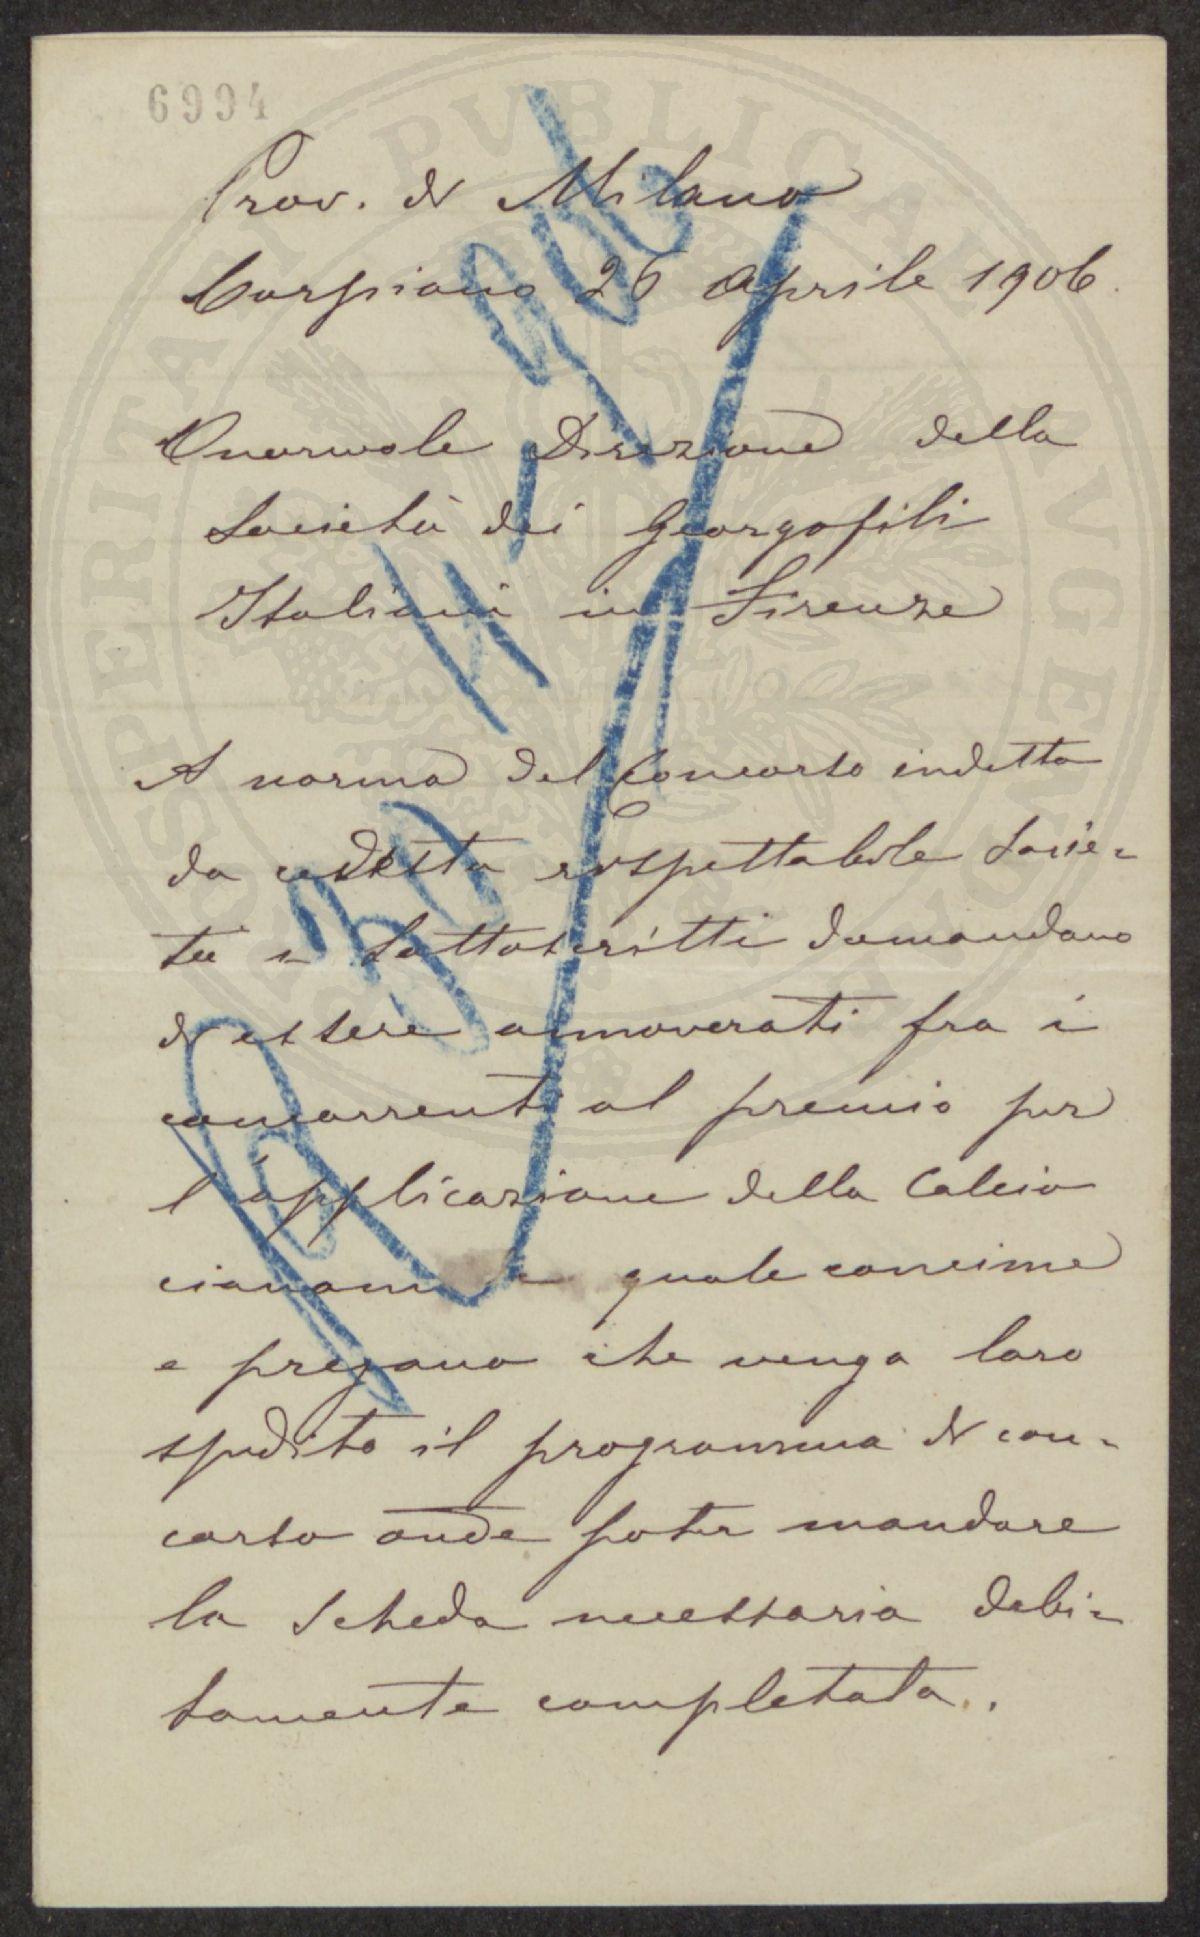 6994
Prov. di Milano
Carpiano 26 Aprile 1906.
Onorevole Direzione della
Società dei Georgofili
Italiani in Firenze
A norma del Concorso indetto
da codesta rispettabile Socie-
tà i sottoscritti domandano
di essere annoverati fra i
concorrenti al premio per
l'applicazione della Calcio
cianamide quale concime
e pregano che venga loro
spedito il programma di con-
corso onde poter mandare
la scheda necessaria debi-
tamente completata.
PROSPERITATI PVBLICAE AVGENDAE